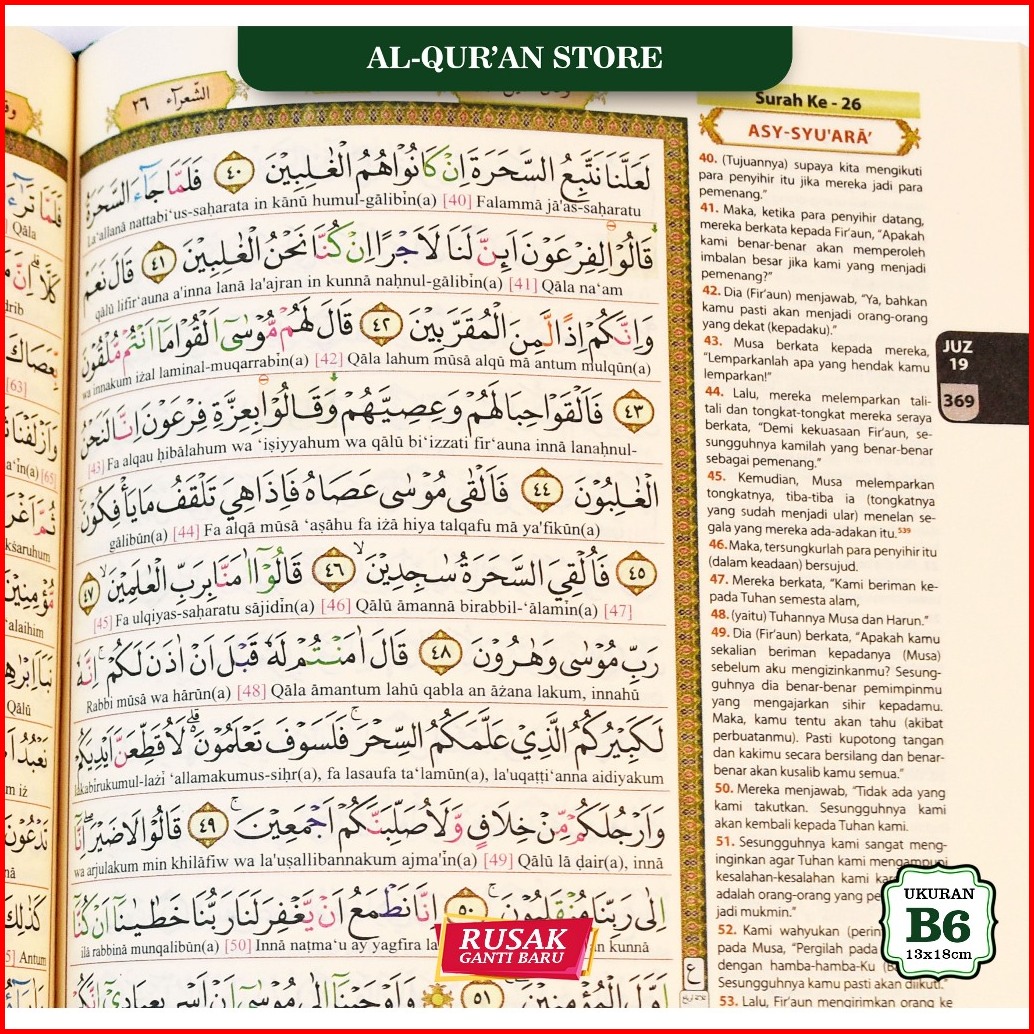 AL-QUR'AN STORE
الشّعراۤء ٢٦
لَعَلَّنَا نَتَّبِعُ السَّحَرَةَ اِنْ كَانُوْا هُمُ الْغٰلِبِيْنَ ٤٠ فَلَمَّا جَاۤءَ السَّحَرَةُ
La'allanā nattabi'us-saḥarata in kānū humul-gālibīn(a) [40] Falammā jā'as-saḥaratu
قَالُوْا لِفِرْعَوْنَ اَىِٕنَّ لَنَا لَاَجْرًا اِنْ كُنَّا نَحْنُ الْغٰلِبِيْنَ ٤١ قَالَ نَعَمْ
qālū lifir'auna a'inna lanā la'ajran in kunnā naḥnul-gālibīn(a) [41] Qāla na'am
وَاِنَّكُمْ اِذًا لَّمِنَ الْمُقَرَّبِيْنَ ٤٢ قَالَ لَهُمْ مُّوْسٰٓى اَلْقُوْا مَآ اَنْتُمْ مُّلْقُوْنَ
wa innakum iżal laminal-muqarrabīn(a) [42] Qāla lahum mūsā alqū mā antum mulqūn(a)
٤٣ فَاَلْقَوْا حِبَالَهُمْ وَعِصِيَّهُمْ وَقَالُوْا بِعِزَّةِ فِرْعَوْنَ اِنَّا لَنَحْنُ
[43] Fa alqau ḥibālahum wa 'iṣiyyahum wa qālū bi'izzati fir'auna innā lanaḥnul-
الْغٰلِبُوْنَ ٤٤ فَاَلْقٰى مُوْسٰى عَصَاهُ فَاِذَا هِيَ تَلْقَفُ مَا يَأْفِكُوْنَ
gālibūn(a) [44] Fa alqā mūsā 'aṣāhu fa iżā hiya talqafu mā ya'fikūn(a)
٤٥ فَاُلْقِيَ السَّحَرَةُ سٰجِدِيْنَ ٤٦ قَالُوْٓا اٰمَنَّا بِرَبِّ الْعٰلَمِيْنَ ٤٧
[45] Fa ulqiyas-saḥaratu sājidīn(a) [46] Qālū āmannā birabbil-'ālamīn(a) [47]
رَبِّ مُوْسٰى وَهٰرُوْنَ ٤٨ قَالَ اٰمَنْتُمْ لَهٗ قَبْلَ اَنْ اٰذَنَ لَكُمْ اِنَّهٗ
Rabbi mūsā wa hārūn(a) [48] Qāla āmantum lahū qabla an āżana lakum, innahū
لَكَبِيْرُكُمُ الَّذِيْ عَلَّمَكُمُ السِّحْرَۚ فَلَسَوْفَ تَعْلَمُوْنَ ۗ لَاُقَطِّعَنَّ اَيْدِيَكُمْ
lakabīrukumul-lażī 'allamakumus-siḥr(a), fa lasaufa ta'lamūn(a), la'uqaṭṭi'anna aidiyakum
وَاَرْجُلَكُمْ مِّنْ خِلَافٍ وَّلَاُصَلِّبَنَّكُمْ اَجْمَعِيْنَۚ ٤٩ قَالُوْا لَا ضَيْرَ ۖ اِنَّآ
wa arjulakum min khilāfiw wa la'uṣallibannakum ajma'īn(a) [49] Qālū lā ḍair(a), innā
اِلٰى رَبِّنَا مُنْقَلِبُوْنَۚ ٥٠ اِنَّا نَطْمَعُ اَنْ يَّغْفِرَ لَنَا رَبُّنَا خَطٰيٰنَآ اَنْ كُنَّآ
ilā rabbinā munqalibūn(a) [50] Innā naṭma'u ay yagfira la
kunnā
اَوَّلَ الْمُؤْمِنِيْنَ ٥١ وَاَوْحَيْنَآ اِلٰى مُوْسٰٓى اَنْ اَسْرِ بِعِبَادِيْٓ اِنَّكُمْ
Surah Ke - 26
ASY-SYU'ARĀ'
40. (Tujuannya) supaya kita mengikuti
para penyihir itu jika mereka jadi para
pemenang."
41. Maka, ketika para penyihir datang,
mereka berkata kepada Fir'aun, "Apakah
kami benar-benar akan memperoleh
imbalan besar jika kami yang menjadi
pemenang?"
42. Dia (Fir'aun) menjawab, "Ya, bahkan
kamu pasti akan menjadi orang-orang
yang dekat (kepadaku)."
43. Musa berkata kepada mereka,
"Lemparkanlah apa yang hendak kamu
lemparkan!"
44. Lalu, mereka melemparkan tali-
tali dan tongkat-tongkat mereka seraya
berkata, "Demi kekuasaan Fir'aun, se-
sungguhnya kamilah yang benar-benar
sebagai pemenang."
45. Kemudian, Musa melemparkan
tongkatnya, tiba-tiba ia (tongkatnya
yang sudah menjadi ular) menelan se-
gala yang mereka ada-adakan itu.539
46. Maka, tersungkurlah para penyihir itu
(dalam keadaan) bersujud.
47. Mereka berkata, "Kami beriman ke-
pada Tuhan semesta alam,
48. (yaitu) Tuhannya Musa dan Harun."
49. Dia (Fir'aun) berkata, "Apakah kamu
sekalian beriman kepadanya (Musa)
sebelum aku mengizinkanmu? Sesung-
guhnya dia benar-benar pemimpinmu
yang mengajarkan sihir kepadamu.
Maka, kamu tentu akan tahu (akibat
perbuatanmu). Pasti kupotong tangan
dan kakimu secara bersilang dan benar-
benar akan kusalib kamu semua."
50. Mereka menjawab, "Tidak ada yang
kami takutkan. Sesungguhnya kami
akan kembali kepada Tuhan kami.
51. Sesungguhnya kami sangat meng-
inginkan agar Tuhan kami mengampuni
kesalahan-kesalahan kami
adalah orang-orang yang
jadi mukmin."
52. Kami wahyukan
pada Musa, "Pergilah pada
dengan hamba-hamba-Ku
Sesungguhnya kamu pasti akan diikuti."
53. Lalu, Fir'aun mengirimkan orang ke
JUZ
19
369
RUSAK
GANTI BARU
UKURAN
B6
13x18cm